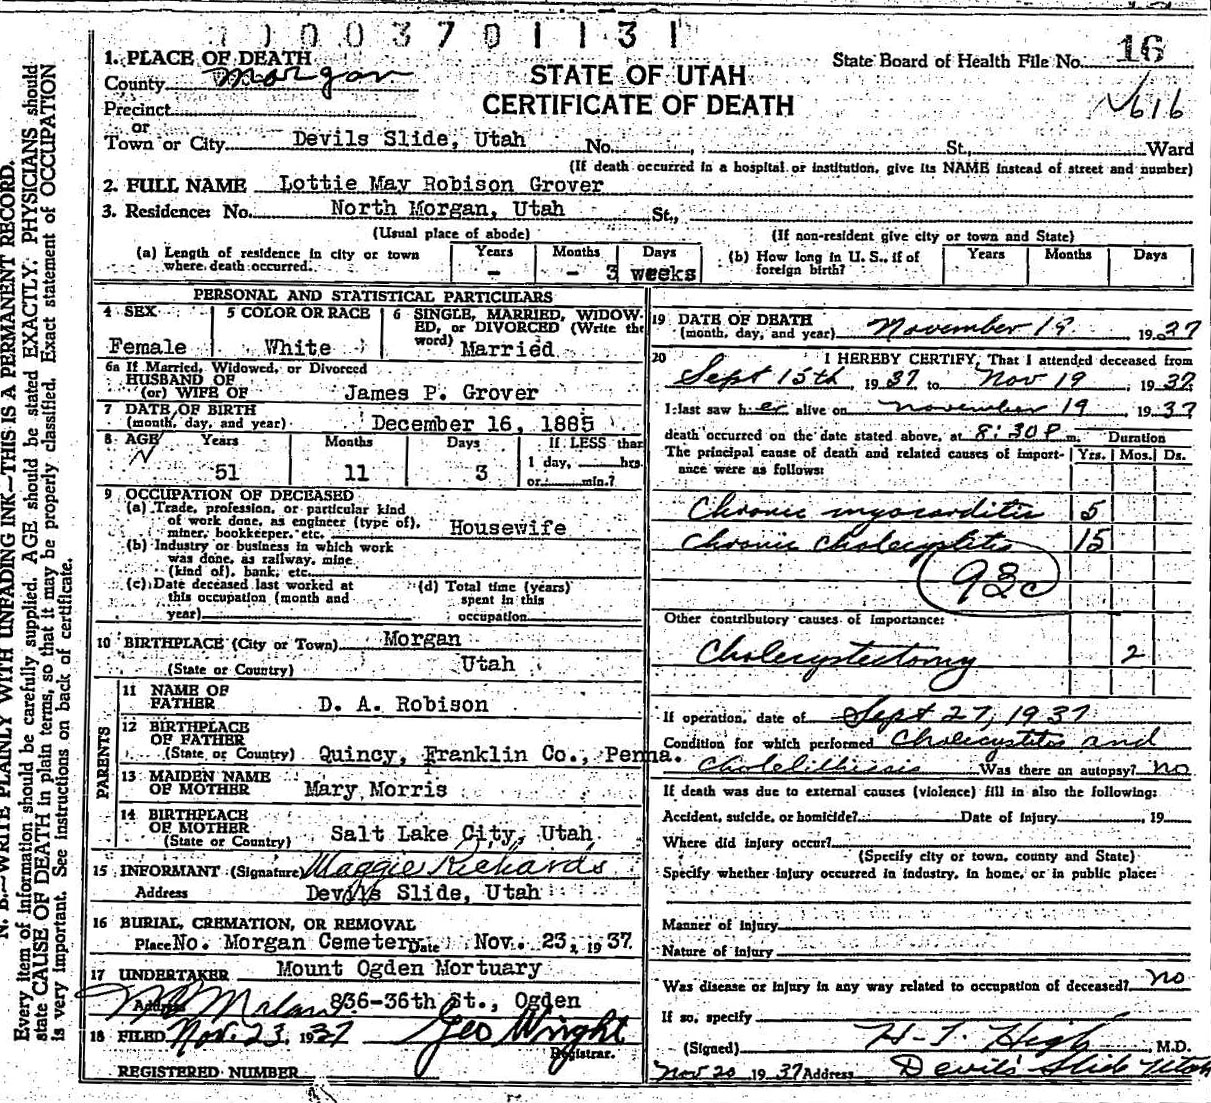 0003701131
1. PLACE OF DEATH
County Morgan
Precinct
or
Town or City Devils Slide, Utah No. St., Ward
STATE OF UTAH
CERTIFICATE OF DEATH
State Board of Health File No. 16
616
(If death occurred in a hospital or institution, give its NAME instead of street and number)
2. FULL NAME Lottie May Robison Grover
3. Residence: No. North Morgan, Utah St.,
(Usual place of abode) (If non-resident give city or town and State)
(a) Length of residence in city or town where death occurred. Years - Months - Days 3 weeks
(b) How long in U. S., if of foreign birth? Years Months Days
PERSONAL AND STATISTICAL PARTICULARS
4 SEX Female
5 COLOR OR RACE White
6 SINGLE, MARRIED, WIDOWED, or DIVORCED (Write the word) Married
6a If Married, Widowed, or Divorced
HUSBAND OF
(or) WIFE OF James P. Grover
7 DATE OF BIRTH
(month, day, and year) December 16, 1885
8 AGE Years 51 Months 11 Days 3
If LESS than
1 day, hrs.
or min.?
9 OCCUPATION OF DECEASED
(a) Trade, profession, or particular kind
of work done, as engineer (type of),
miner, bookkeeper, etc. Housewife
(b) Industry or business in which work
was done, as railway, mine
(kind of), bank, etc.
(c) Date deceased last worked at
this occupation (month and
year)
(d) Total time (years)
spent in this
occupation
10 BIRTHPLACE (City or Town) Morgan
(State or Country) Utah
PARENTS
11 NAME OF
FATHER D. A. Robison
12 BIRTHPLACE
OF FATHER
(State or Country) Quincy, Franklin Co., Penna.
13 MAIDEN NAME
OF MOTHER Mary Morris
14 BIRTHPLACE
OF MOTHER
(State or Country) Salt Lake City, Utah
15 INFORMANT (Signature) Maggie Richards
Address Devils Slide, Utah
16 BURIAL, CREMATION, OR REMOVAL
Place No. Morgan Cemetery Date Nov. 23, 1937
17 UNDERTAKER Mount Ogden Mortuary
Address 836-36th St., Ogden
18 FILED Nov. 23, 1937 Geo Wright
Registrar.
REGISTERED NUMBER
19 DATE OF DEATH
(month, day, and year) November 19 1937
20 I HEREBY CERTIFY, That I attended deceased from
Sept 15th, 1937 to Nov 19, 1937
I last saw her alive on November 19, 1937
death occurred on the date stated above, at 8:30 P m. Duration
The principal cause of death and related causes of importance were as follows: Yrs. Mos. Ds.
Chronic myocarditis 5
Chronic cholecystitis 15
93c
Other contributory causes of importance:
Cholecystectomy 2
If operation, date of Sept 27, 1937
Condition for which performed Cholecystitis and
Cholelithiasis Was there an autopsy? no
If death was due to external causes (violence) fill in also the following:
Accident, suicide, or homicide? Date of Injury , 19
Where did injury occur?
(Specify city or town, county and State)
Specify whether injury occurred in industry, in home, or in public place:
Manner of injury
Nature of injury
Was disease or injury in any way related to occupation of deceased? no
If so, specify
(Signed) H. T. High, M.D.
Nov 20 1937 Address Devil's Slide Utah
N. B.—WRITE PLAINLY WITH UNFADING INK—THIS IS A PERMANENT RECORD.
Every item of information should be carefully supplied. AGE should be stated EXACTLY. PHYSICIANS should
state CAUSE OF DEATH in plain terms, so that it may be properly classified. Exact statement of OCCUPATION
is very important. See instructions on back of certificate.